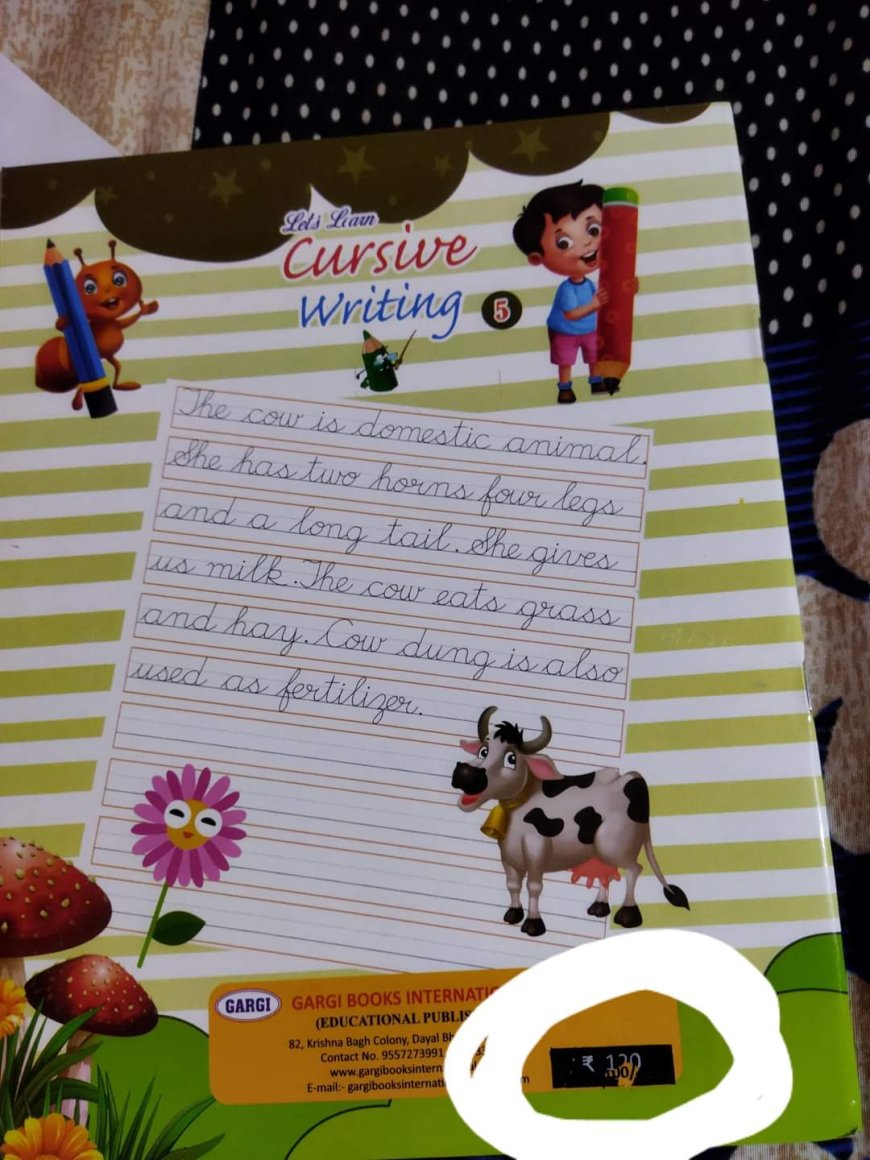 Let's Learn
Cursive
Writing 5
The cow is domestic animal.
She has two horns four legs
and a long tail. She gives
us milk. The cow eats grass
and hay. Cow dung is also
used as fertilizer.
GARGI GARGI BOOKS
(EDUCATIONAL
82, Krishna Bagh Colony, Dayal
Contact No. 9557273991
E-mail:-
₹ 120